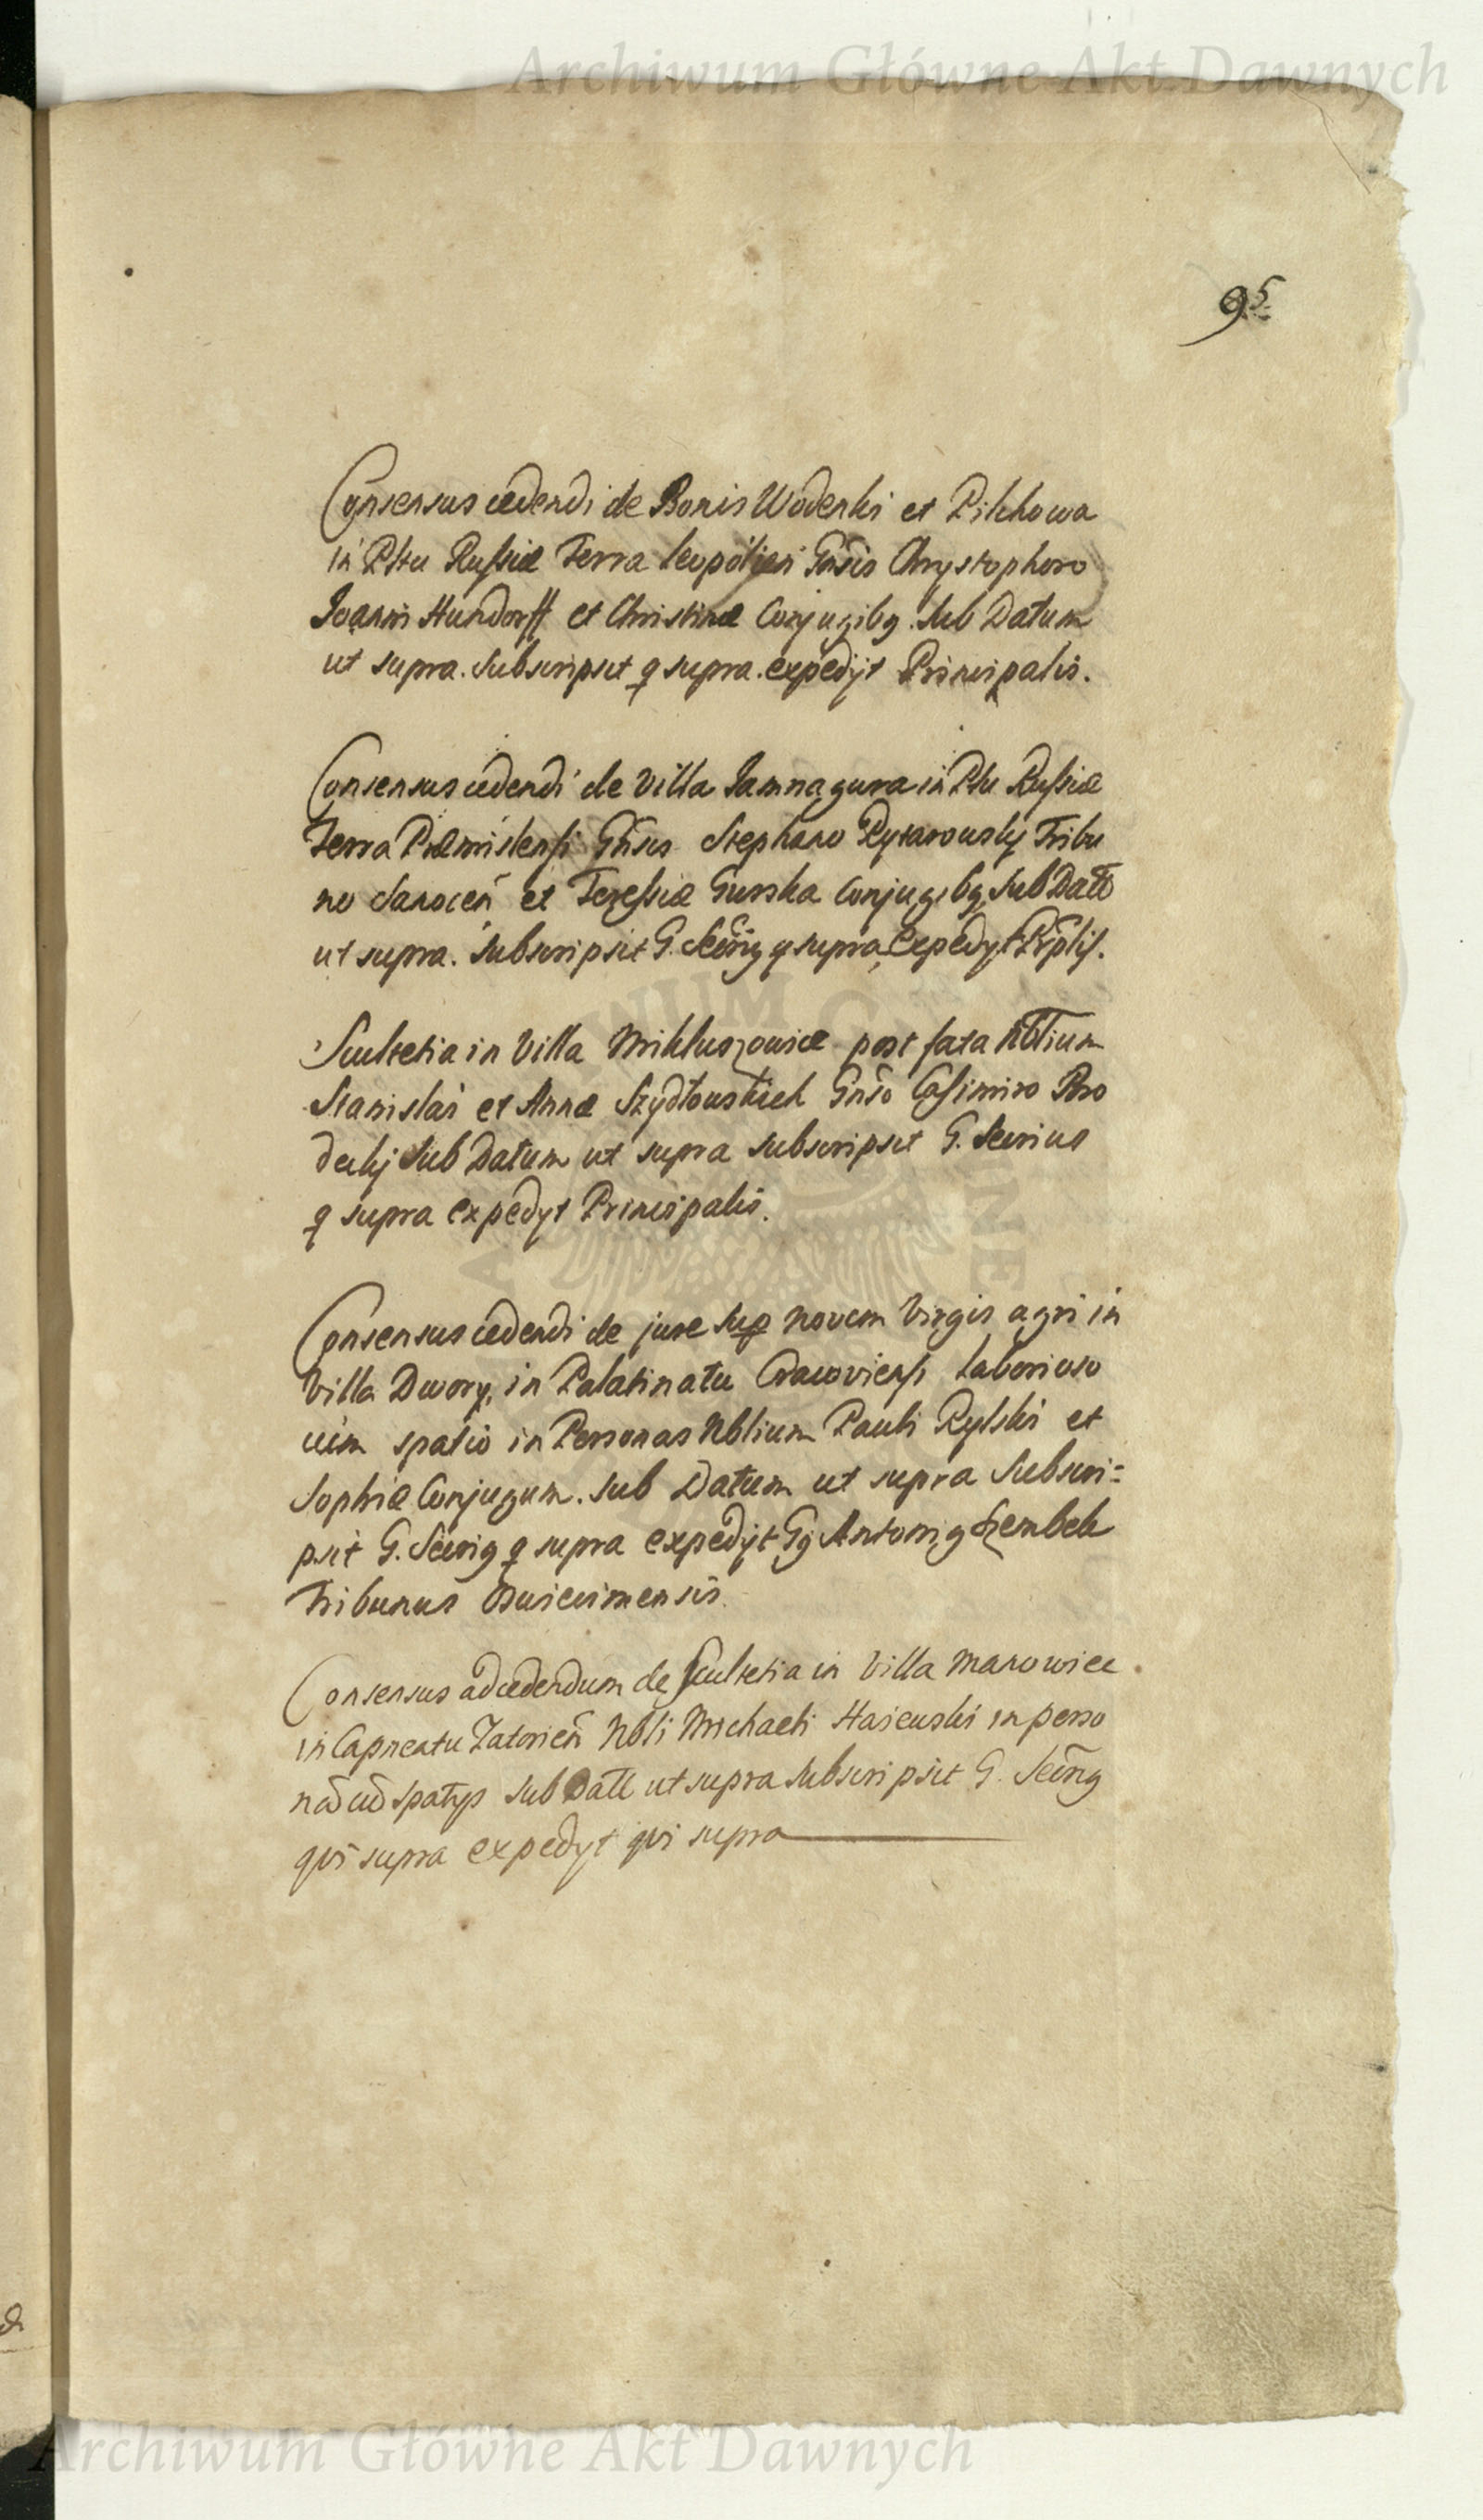 Archiwum Główne Akt Dawnych
95
Consensus cedendi de Bonis Wodenki et Pilchowa
in Pltu Russiæ Terra Leopolien Gnsis Chrystophoro
Joanni Hundorff et Christinæ Conjugibq. Sub Datum
ut supra. Subscripsit q supra. expedijt Principalis.
Consensus cedendi de Villa Jamnagura in Pltu Russiæ
Terra Præmislensi Gnsis Stephano Rytarowskij Tribu
no Sanocen et Teressiæ Gurska Conjugibq Sub Datt
ut supra. Subscripsit G. Secrig q supra, expedyt Prplis.
Scultetia in Villa Mikluszowice post fata Nblium
Stanislai et Annæ Szydłowskich Gnso Casimiro Bro
deckij Sub Datum ut supra subscripsit G. Secrius
q supra expedyt Principalis.
Consensus cedendi de jure sup novem Virgis agri in
Villa Dwory, in Palatinatu Cracoviensi laborioso
cum spatio in Personas Nblium Pauli Rylski et
Sophiæ Conjugum. Sub Datum ut supra Subscri=
psit G. Secrig q supra expedijt Gg Antonig Szembek
Tribunus Oswiecimensis.
Consensus ad cedendum de Scultetia in Villa Manowice
in Capneatu Zatorien Nbli Michaeli Hasewski in perso
nas cu spatys sub Datt ut supra subscripsit G. Secrig
qui supra expedyt qui supra
Archiwum Główne Akt Dawnych